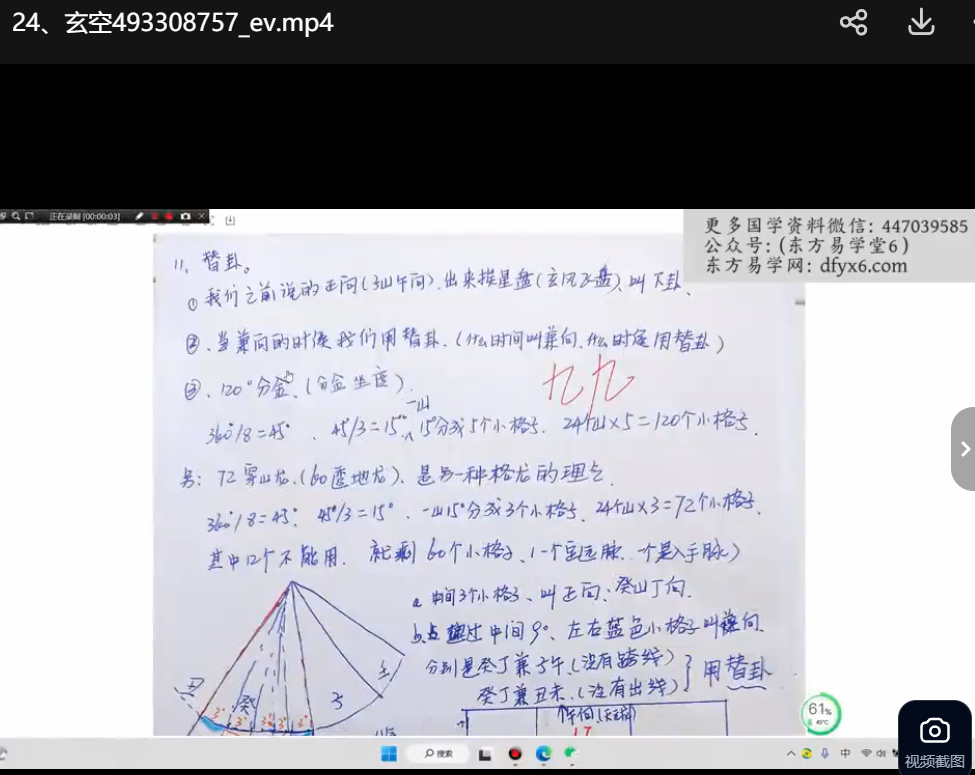 24、玄空493308757_ev.mp4
正在录制 [00:00:03]
更多国学资料微信: 447039585
公众号:(东方易学堂6)
东方易学网: dfyx6.com
11、替卦。
① 我们之前说的正向(子山午向).出来挨星盘(玄风飞盘)、叫下卦、
②、当兼向的时候我们用替卦.(什么时间叫兼向、什么时候用替卦)
③、120°分金、(分金坐度).
九九
一山
360°/8=45°、45°/3=15°、15°分成5个小格子.24个山×5=120个小格子.
另: 72穿山龙.(60透地龙)、是另一种格龙的理气.
360°/8=45°.45°/3=15°、一山15°分成3个小格子.24个山×3=72个小格子.
其中12个不能用.就剩60个小格子、(一个是过脉.一个是入手脉)
a 中间3个小格子、叫正向:癸山丁向.
b.超过中间9°、左右蓝色小格子叫兼向.
分别是癸丁兼子午.(没有跨线)
癸丁兼丑未.(没有出线)
用替卦
丑
癸
子
壬
3° 3° 3° 3° 3°
17
61%
搜索
中
视频截图